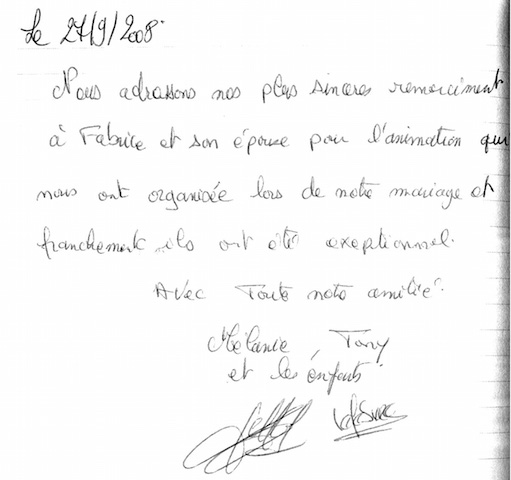 Le 27/9/2008.
Nous adressons nos plus sincères remerciment
à Fabrice et son épouse pour l'animation qui
nous ont organisée lors de notre mariage et
franchement ils ont été exeptionnel.
Avec Toute notre amitié.
Mélanie, Tony
et les enfants